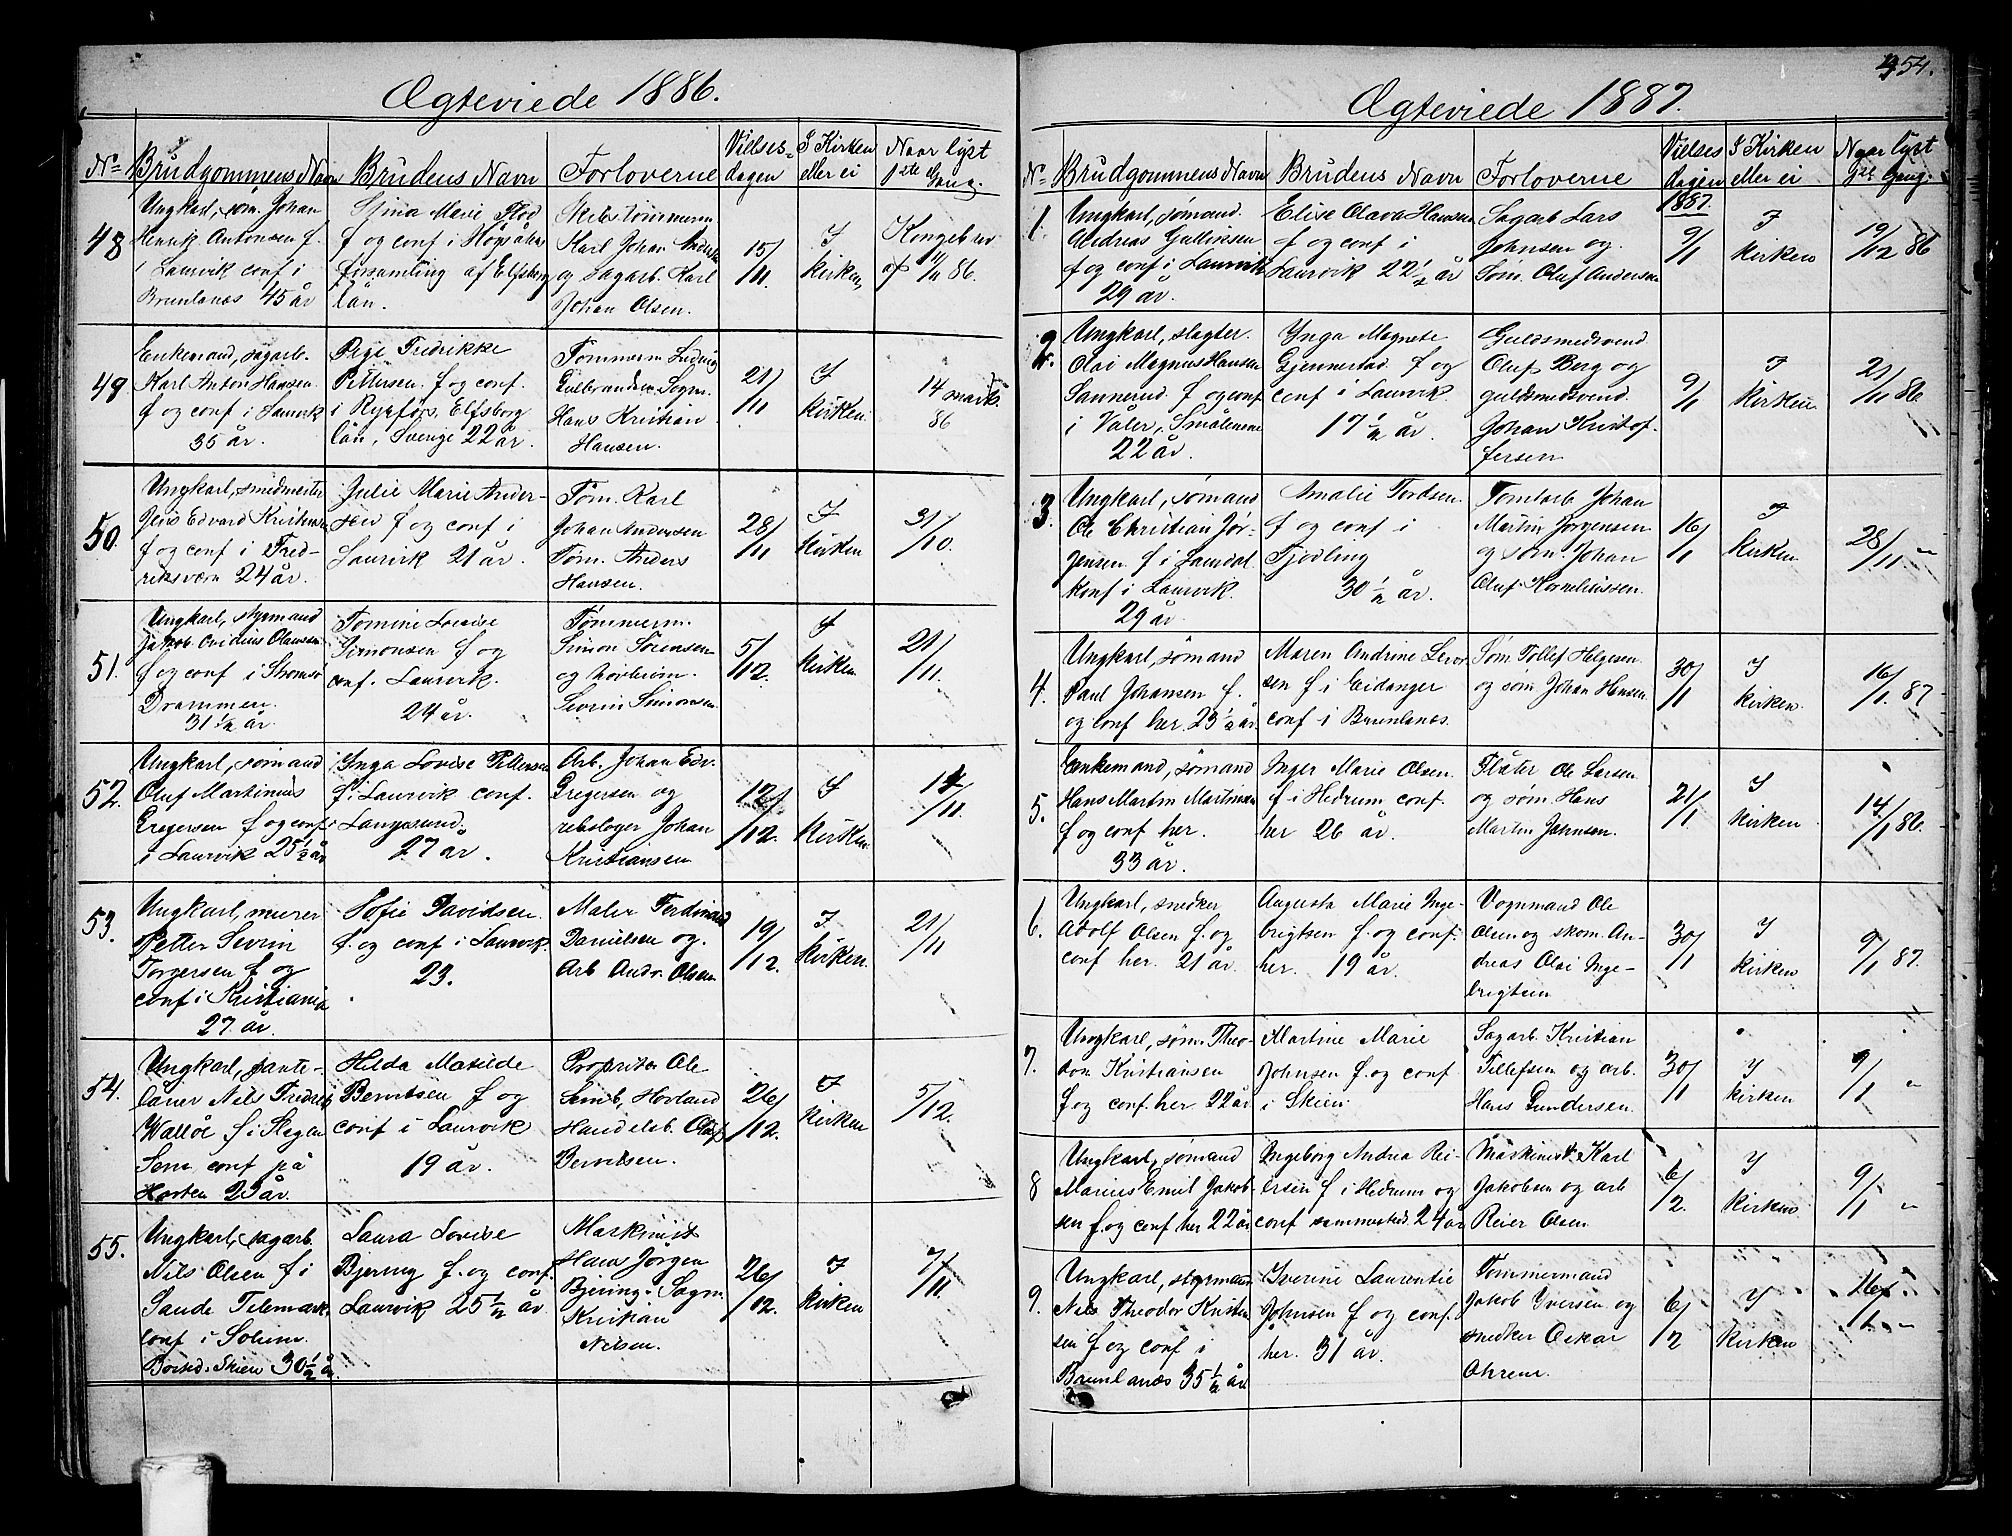 Ægteviede 1886.
Nº Brudgommens Navn Brudens Navn Forloverne Vielses- dagen I Kirken eller ei Naar lyst 1ste Gang.
48
Ungkarl, søm. Johan
Henrik Antonsen f.
i Laurvik conf i
Brunlanæs 45 år
Stina Marie Flod
f og conf i
forsamling af Elfsborg
län.
Skibstømmerm.
Karl Johan
og sagarb. Karl
Johan Olsen.
15/11
I
kirken
Kongebrev
af 11/11 86.
49.
Enkemand, sagarb.
Karl Anton Hansen
f og conf i Laurvik
35 år.
Fredrikke
Pettersen. f og conf.
i Elfsborg
län, Sverige 22 år.
Tømmerm Ludvig
Gulbrandsen Sogn.
Hans Kristian
Hansen.
21/11
I
kirken.
14 mark.
86
50.
Ungkarl, smedmester
Jens Edvard Kristensen
f og conf i Fred-
riksværn 24 år.
Julie Marie Ander-
sen f og conf i
Laurvik 21 år.
Tøm. Karl
Johan Andersen
Tøm. Anders
Hansen.
28/11
I
kirken
31/10.
51.
Ungkarl, styrmand
Jakob Ovidius Olaussen
f og conf i Strømsø
Drammen.
31 1/2 år.
Tomine Lovise
Simonsen f og
conf. Laurvik.
24 år.
Tømmerm.
Simon Sørensen
og
Severin Simonsen.
5/12.
I
kirken
21/11.
52.
Ungkarl, sømand
Oluf Martinius
Gregersen f og conf
i Laurvik 25 1/2 år
Inga Lovise Pettersen
f. i Laurvik conf.
i Langesund.
27 år.
Arb. Johan Edv.
Gregersen og
rebslager Johan
Kristiansen
12/12.
I
kirken.
14/11.
53.
Ungkarl, murer
Petter Severin
Torgersen f og
conf i Kristiania
27 år.
Sofie Davidsen
f. og conf i Laurvik.
23.
Maler Ferdinand
Danielsen og.
Arb Andr. Olsen
19/12.
I
kirken.
21/11
54.
Ungkarl,
Nils Fredrik
Walløe f i Slagen
Sem, conf på
Horten 25 år.
Hilda Matilde
Berntsen f og
conf i Laurvik
19 år.
Proprietær Ole
Semb, Hovland
Handelsb. Oluf
Berntsen.
26/12.
I
kirken
5/12.
55.
Ungkarl, sagarb.
Nils Olsen f i
Sande Telemark.
conf i Solum
Skien 30 1/2 år.
Laura Lovise
Bjering f. og conf.
Laurvik 25 1/2 år.
Maskinist
Hans Jørgen
Bjering. Sagm.
Kristian
Nilsen.
26/12.
I
kirken
7/11.
454.
Ægteviede 1887.
Nº Brudgommens Navn Brudens Navn Forloverne Vielses dagen I Kirken eller ei Naar lyst 1ste Gang.
1887.
1.
Ungkarl, sømand.
Andreas Gulliksen
f og conf i Laurvik
29 år.
Elise Olava Hansen
f og conf i
Laurvik 22 1/2 år
Sagarb Lars
Johnsen og.
Søm. Oluf Andersen
9/1
I
kirken
19/12 86
2.
Ungkarl, slagter.
Olai Magnus Hansen
Sannerud. f og conf
i Våler, Smålenene
22 år.
Ynga Magnete
Gjennestad f og
conf i Laurvik.
17 1/2 år.
Guldsmedsvend
Oluf Berg og
guldsmedsvend.
Johan Kristof-
fersen
9/1
I
kirken
21/11 86
3.
Ungkarl, sømand
Ole Christian Jør-
gensen f i Laurdal
konf i Laurvik.
29 år.
Amalie Tordsen.
f og conf i
Tjødling
30 1/2 år.
Tomtarb Johan
Martin Jørgensen
og søm. Johan
Oluf Korneliussen.
16/1
I
kirken
28/11 "
4.
Ungkarl, sømand
Paul Johansen f.
og conf her. 23 1/2 år.
Maren Andrine
sen f i Eidanger
conf i Brunlanæs.
Søm Tollef Helgesen
og søm Johan Hansen
30/1
I
kirken.
16/1. 87
5.
Enkemand, sømand
Hans Martin Martinsen
f og conf her.
33 år.
Inger Marie Olsen.
f i Hedrum conf.
her 26 år.
Flåter Ole Larsen
og søm. Hans
Martin Johnsen.
21/1
I
kirken
14/1 86.
6.
Ungkarl, snedker
Adolf Olsen f. og
conf her. 21 år.
Augusta Marie Inge-
brigtsen f. og conf.
her. 19 år.
Vognmand Ole
Olsen og skom. An-
dreas Olai Inge-
brigtsen
30/1
I
kirken
9/1 87.
7.
Ungkarl, søm. Theo-
dor Kristiansen
f og conf. her 22 år
Martine Marie
Johnsen f. og conf
i Skien
Sagarb. Kristian
Tellefsen og arb.
Hans Gundersen.
30/1
I
kirken
9/1 "
8
Ungkarl, sømand
Marius Emil Jakob-
sen f og conf her 22 år
Ingeborg Andrea Rei-
ersen f i Hedrum og
conf sammested. 24 år
Maskinist Karl
Jakobsen og arb
Reier Olsen
6/2.
I
kirken
9/1 "
9.
Ungkarl, styrmand
Nils Theodor Kristen
sen f og conf i
Brunlanæs 35 1/2 år
Iverine Laurentie
Johnsen f og conf.
her. 31 år.
Tømmermand
Jakob Iversen og
snedker Oskar
Ohrene.
6/2
I
kirken
16/1. "